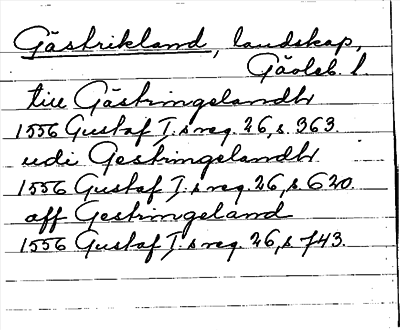 Gästrikland, landskap,
Gävleb. l.
till Gästringelandh
1556 Gustaf I:s reg. 26, s. 363.
udi Gestringelandh
1556 Gustaf I:s reg. 26, s 620.
aff Gestringeland
1556 Gustaf I:s reg. 26, s 743.